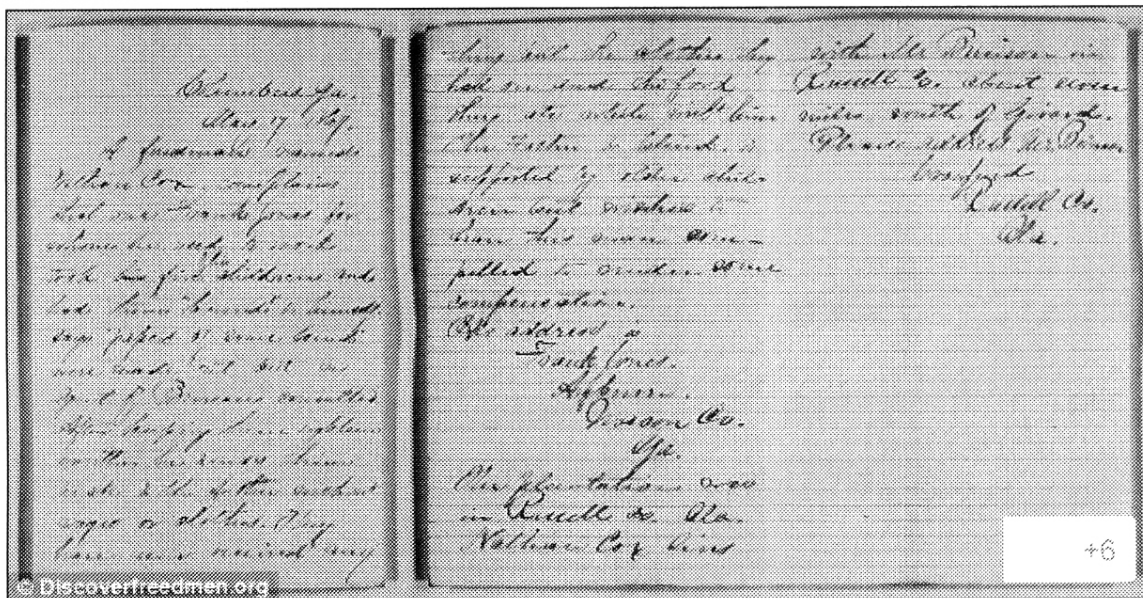 Columbus Ga.
May 17 1867.
A freedman named
Nathan Cox, complains
that one Frank Jones for
whom he used to work
took his five children and
had them bound to himself.
says papers of some kind
were made out
After keeping them eighteen
months he sends them
back to the father without
wages or clothes. They
have never received any
thing but the clothes they
had on and the food
they ate while with him
The Father is blind, is
supported by older child-
ren but wishes to
have this man com-
pelled to render some
compensation.
His address is
Frank Jones.
Co.
Ga.
The plantation was
in Russell Co. Ala.
Nathan Cox lives
with Mr in
Russell Co. about seven
miles south of Girard.
Please address Mr
Crawford
Russell Co.
Ala.
+6
© Discoverfreedmen.org